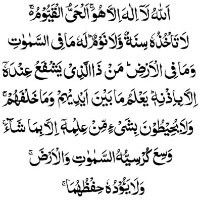 اَللّٰهُ لَآ اِلٰهَ اِلَّا هُوَ ۚ اَلْحَیُّ الْقَیُّوْمُ ۚ
لَا تَاْخُذُهٗ سِنَةٌ وَّلَا نَوْمٌ ؕ لَهٗ مَا فِی السَّمٰوٰتِ
وَمَا فِی الْاَرْضِ ؕ مَنْ ذَا الَّذِیْ یَشْفَعُ عِنْدَهٗۤ
اِلَّا بِاِذْنِهٖ ؕ یَعْلَمُ مَا بَیْنَ اَیْدِیْهِمْ وَمَا خَلْفَهُمْ ۚ
وَلَا یُحِیْطُوْنَ بِشَیْءٍ مِّنْ عِلْمِهٖۤ اِلَّا بِمَا شَآءَ ۚ
وَسِعَ كُرْسِیُّهُ السَّمٰوٰتِ وَالْاَرْضَ ۚ
وَلَا یَـُٔوْدُهٗ حِفْظُهُمَا ۚ